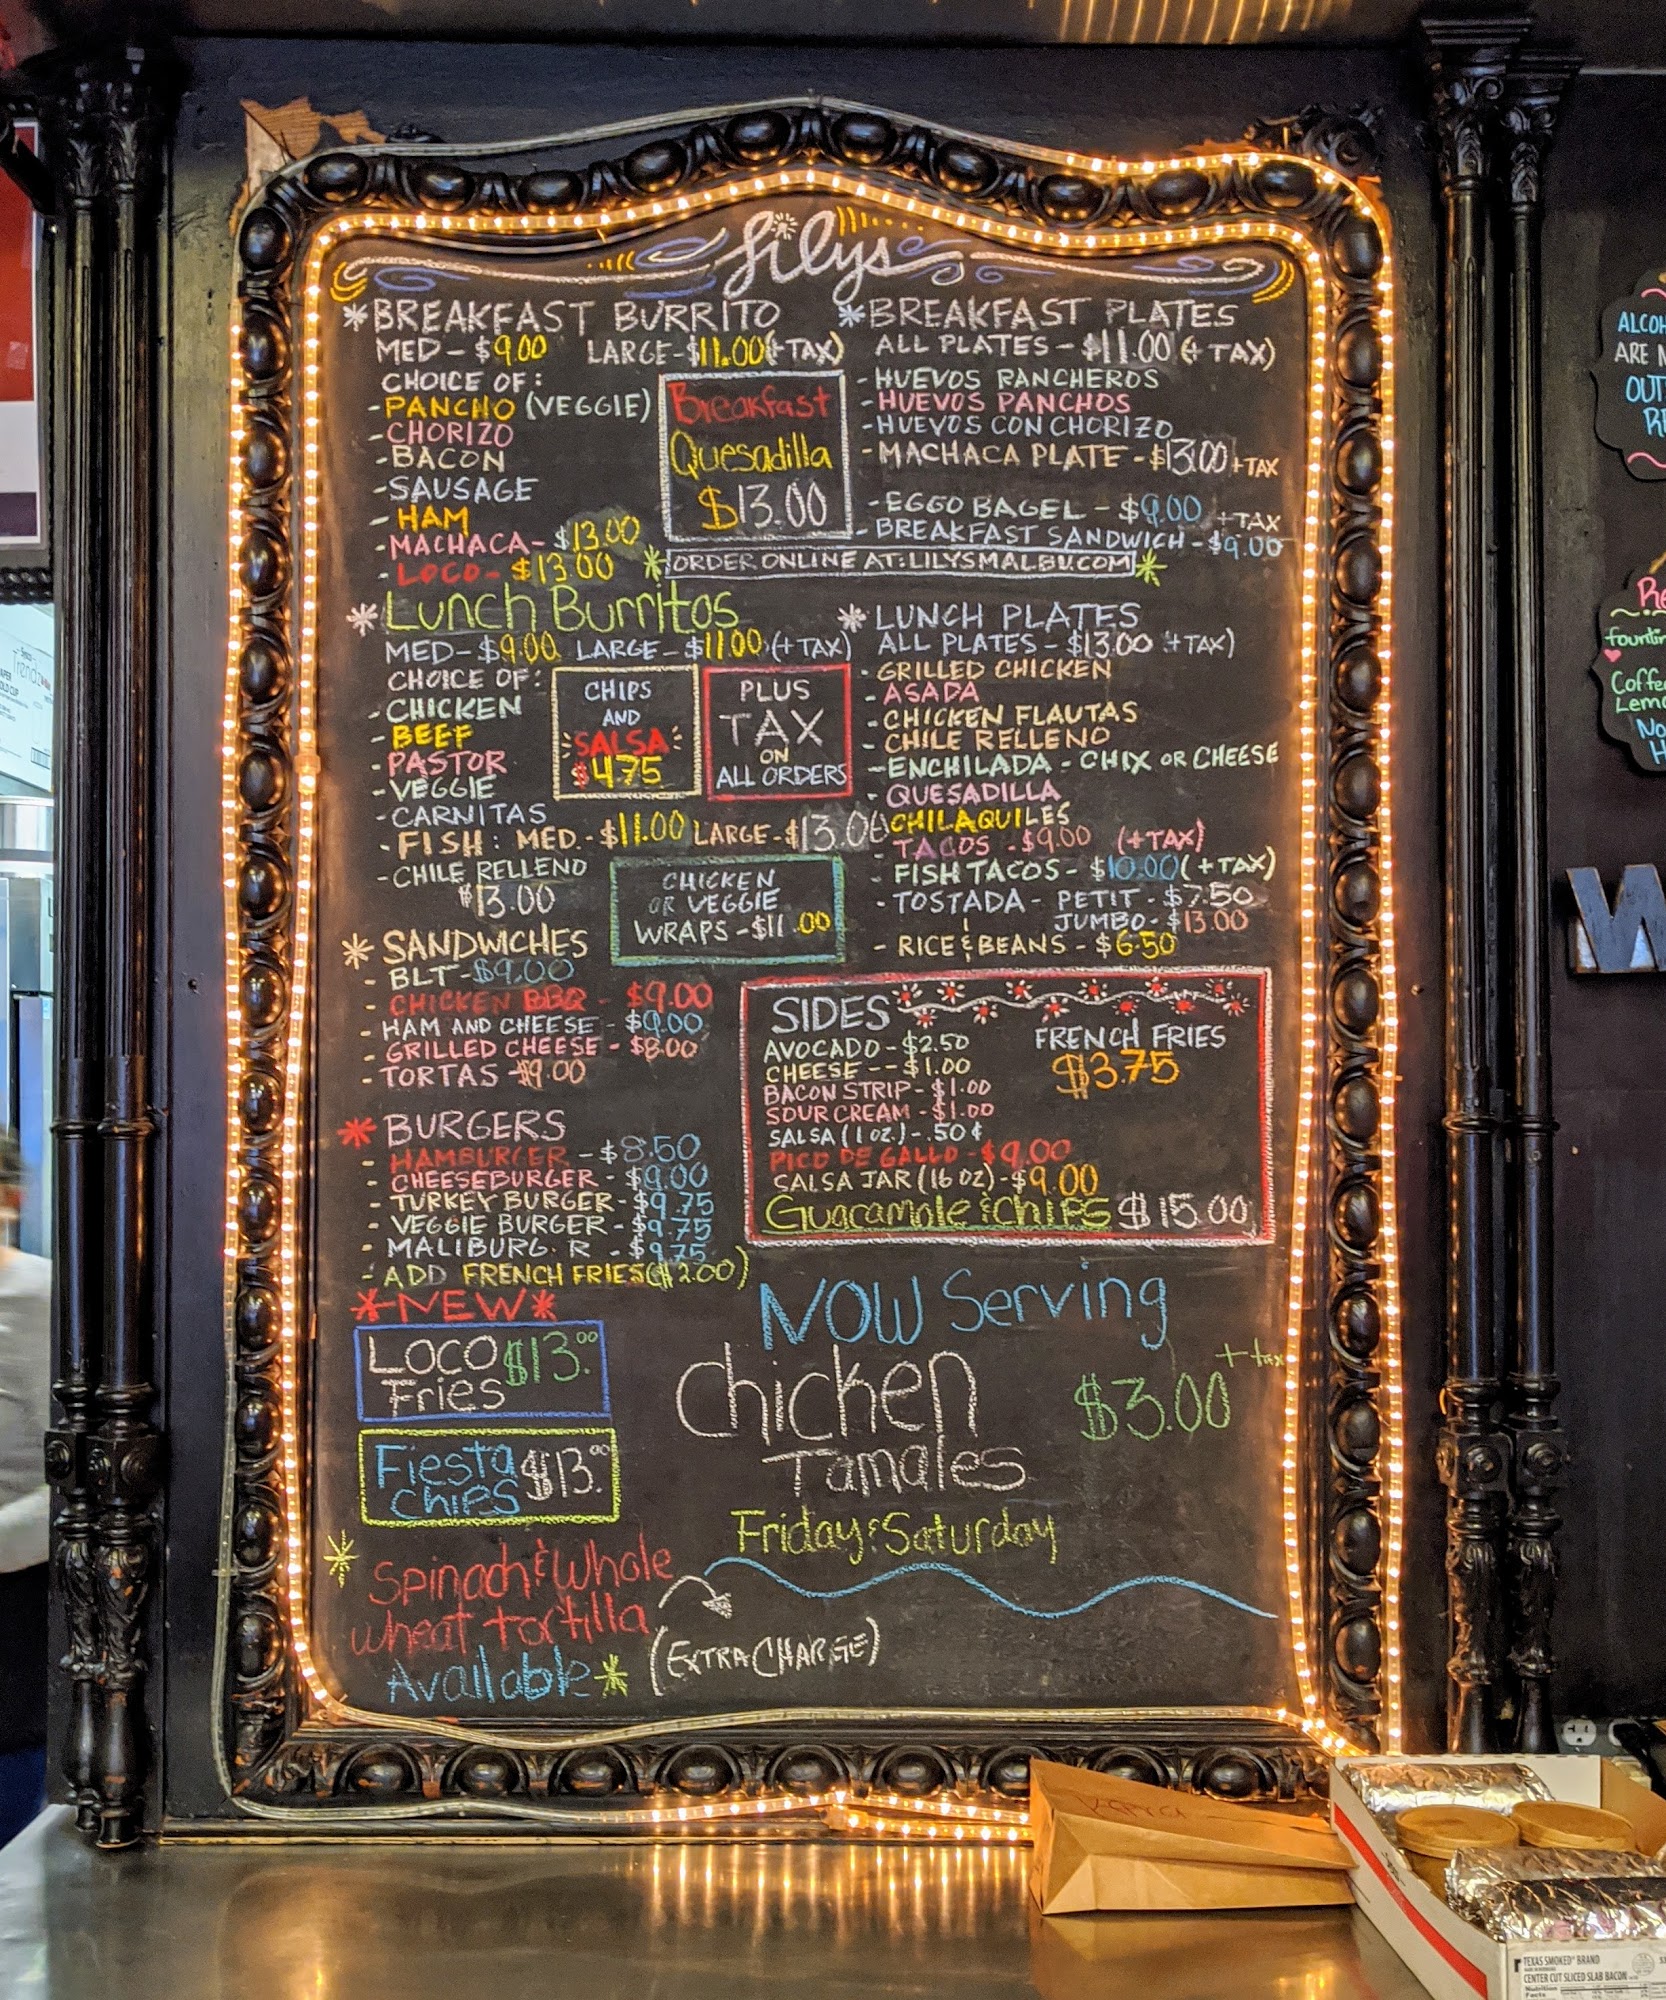 Lilys
*BREAKFAST BURRITO
MED-$9.00 LARGE-$11.00(+TAX)
CHOICE OF:
-PANCHO (VEGGIE)
-CHORIZO
-BACON
-SAUSAGE
-HAM
-MACHACA-$13.00
-LOCO-$13.00
Breakfast
Quesadilla
$13.00
*BREAKFAST PLATES
ALL PLATES-$11.00(+TAX)
-HUEVOS RANCHEROS
-HUEVOS PANCHOS
-HUEVOS CON CHORIZO
-MACHACA PLATE-$13.00+TAX
-EGGO BAGEL-$9.00 +TAX
-BREAKFAST SANDWICH-$9.00
*ORDER ONLINE AT:LILYSMALBU.COM*
*Lunch Burritos
MED-$9.00 LARGE-$11.00(+TAX)
CHOICE OF:
-CHICKEN
-BEEF
-PASTOR
-VEGGIE
-CARNITAS
-FISH: MED.-$11.00 LARGE-$13.00
-CHILE RELLENO
$13.00
CHIPS
AND
SALSA
$4.75
PLUS
TAX
ON
ALL ORDERS
CHICKEN
OR VEGGIE
WRAPS-$11.00
*LUNCH PLATES
ALL PLATES-$13.00 +TAX)
-GRILLED CHICKEN
-ASADA
-CHICKEN FLAUTAS
-CHILE RELLENO
-ENCHILADA-CHIX OR CHEESE
-QUESADILLA
CHILAQUILES
-TACOS-$9.00 (+TAX)
-FISH TACOS-$10.00(+TAX)
-TOSTADA-PETIT-$7.50
JUMBO-$13.00
-RICE & BEANS-$6.50
*SANDWICHES
-BLT-$9.00
-CHICKEN BBQ-$9.00
-HAM AND CHEESE-$9.00
-GRILLED CHEESE-$8.00
-TORTAS-$9.00
*BURGERS
-HAMBURGER-$8.50
-CHEESEBURGER-$9.00
-TURKEY BURGER-$9.75
-VEGGIE BURGER-$9.75
-MALIBURG R-$9.75
-ADD FRENCH FRIES($2.00)
SIDES
AVOCADO-$2.50
CHEESE--$1.00
BACON STRIP-$1.00
SOUR CREAM-$1.00
SALSA (1 OZ.)-.50¢
PICO DE GALLO-$9.00
SALSA JAR (16 OZ)-$9.00
Guacamole & Chips $15.00
FRENCH FRIES
$3.75
*NEW*
LOCO
Fries $13.00
Fiesta
Chips $13.00
NOW Serving
Chicken
Tamales
$3.00 + tax
Friday & Saturday
*Spinach & Whole
wheat tortilla
Available*
(EXTRA CHARGE)
ALCOH
ARE N
OUT
RE
Re
fountin
Coffe
Lemo
No
H
W
TEXAS SMOKED BRAND
CENTER CUT SLICED SLAB BACON
Nutrition
Facts